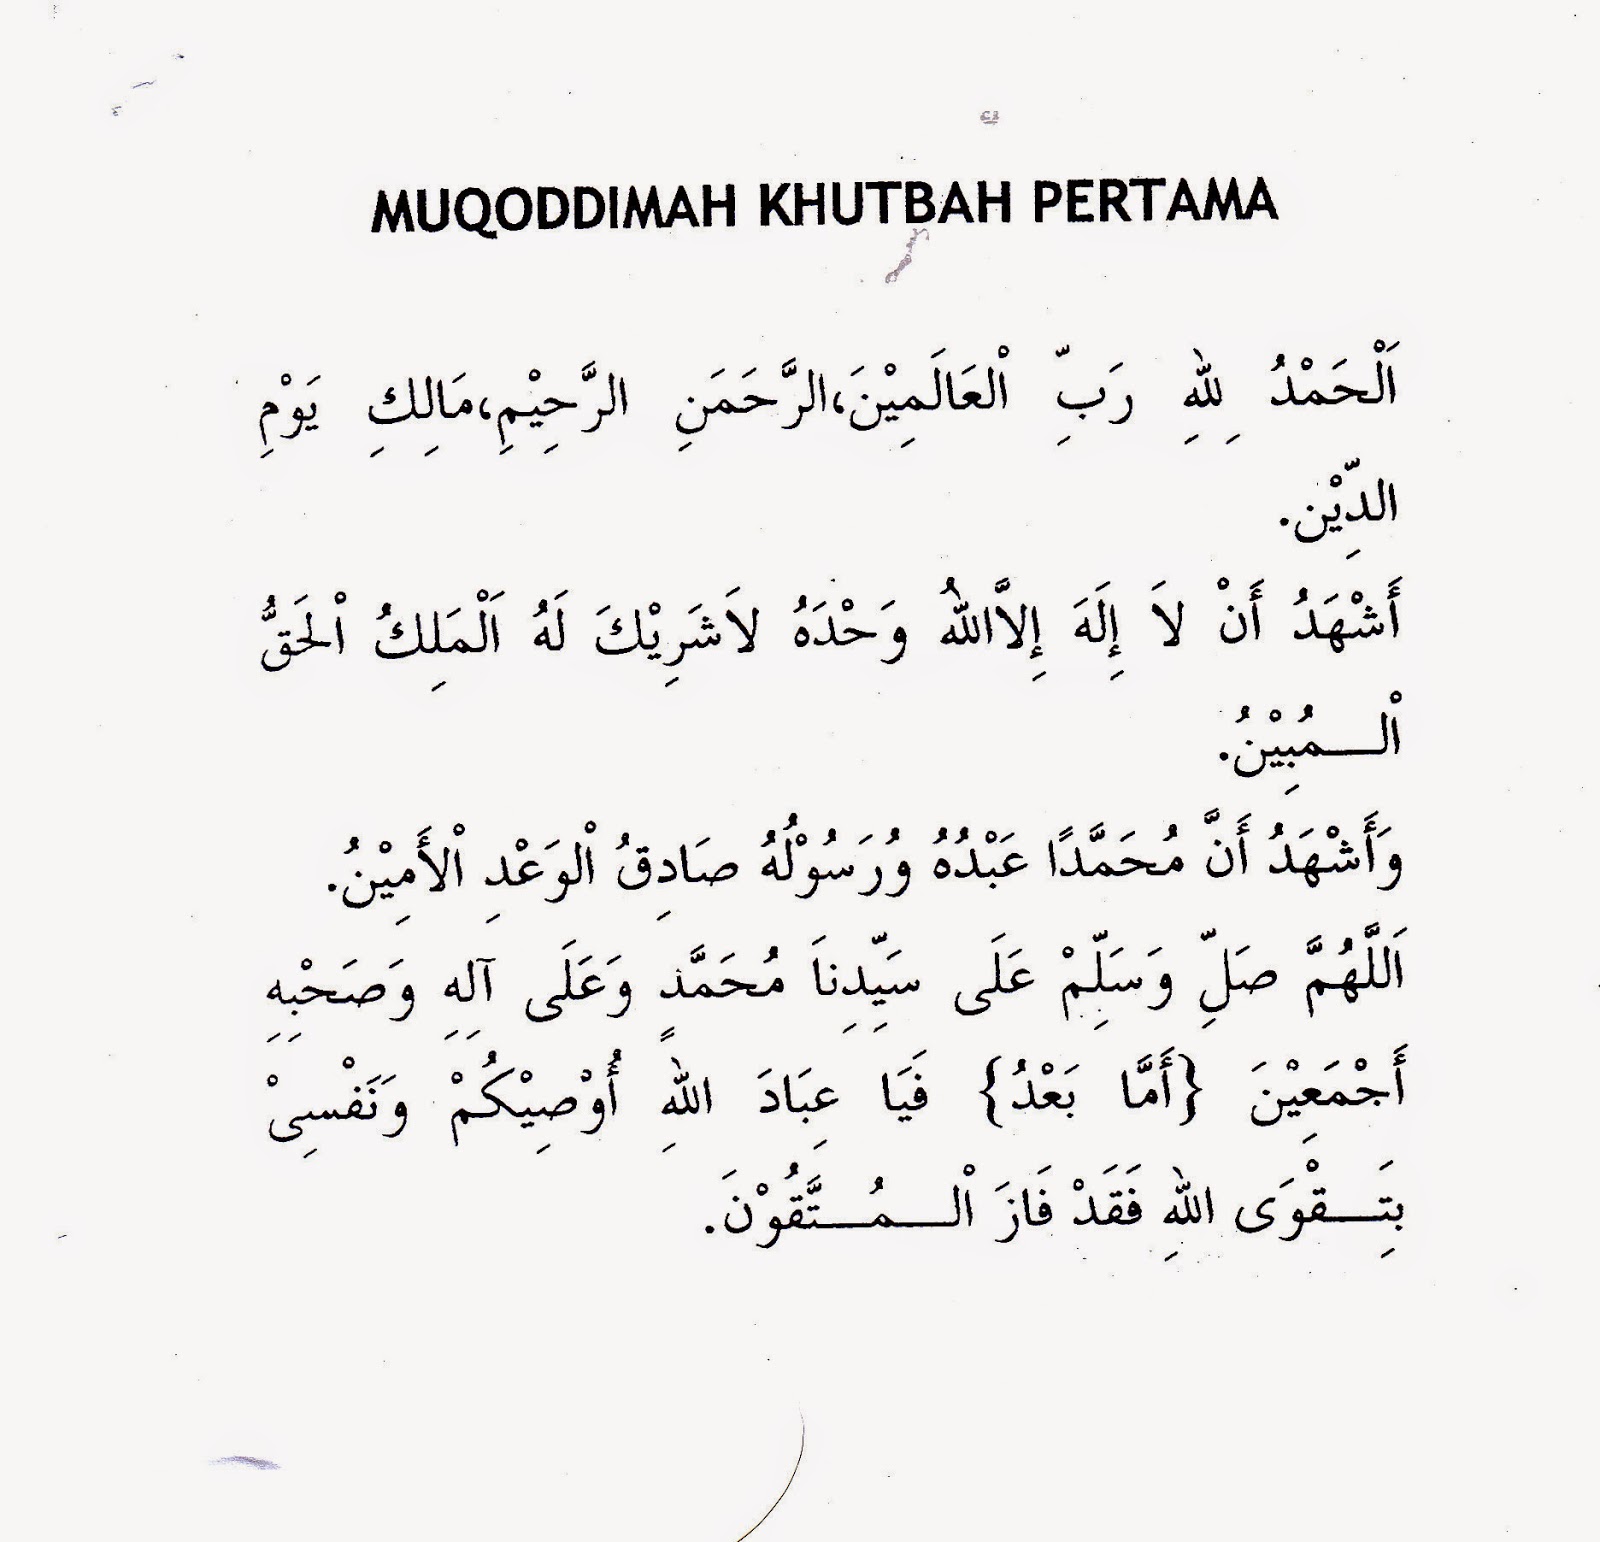 MUQODDIMAH KHUTBAH PERTAMA
اَلْحَمْدُ لِلهِ رَبِّ اْلعَالَمِيْنَ،الرَّحَمَنِ الرَّحِيْمِ،مَالِكِ يَوْمِ
الدِّيْن.
أَشْهَدُ أَنْ لاَ إِلَهَ إِلاَّاللهُ وَحْدَهُ لاَشَرِيْكَ لَهُ اَلْمَلِكُ اْلحَقُّ
اْلـــمُبِيْنُ.
وَأَشْهَدُ أَنَّ مُحَمَّدًا عَبْدُهُ وُرَسُوْلُهُ صَادِقُ اْلوَعْدِ اْلأَمِيْنُ.
اَللَّهُمَّ صَلِّ وَسَلِّمْ عَلَى سَيِّدِناَ مُحَمَّدٍ وَعَلَى آلِهِ وَصَحْبِهِ
أَجْمَعِيْنَ {أَمَّا بَعْدُ} فَيَا عِبَادَ اللهِ أُوْصِيْكُمْ وَنَفْسِىْ
بِتَـــقْوَى اللهِ فَقَدْ فَازَ اْلـــمُـــتَّقُوْنَ.